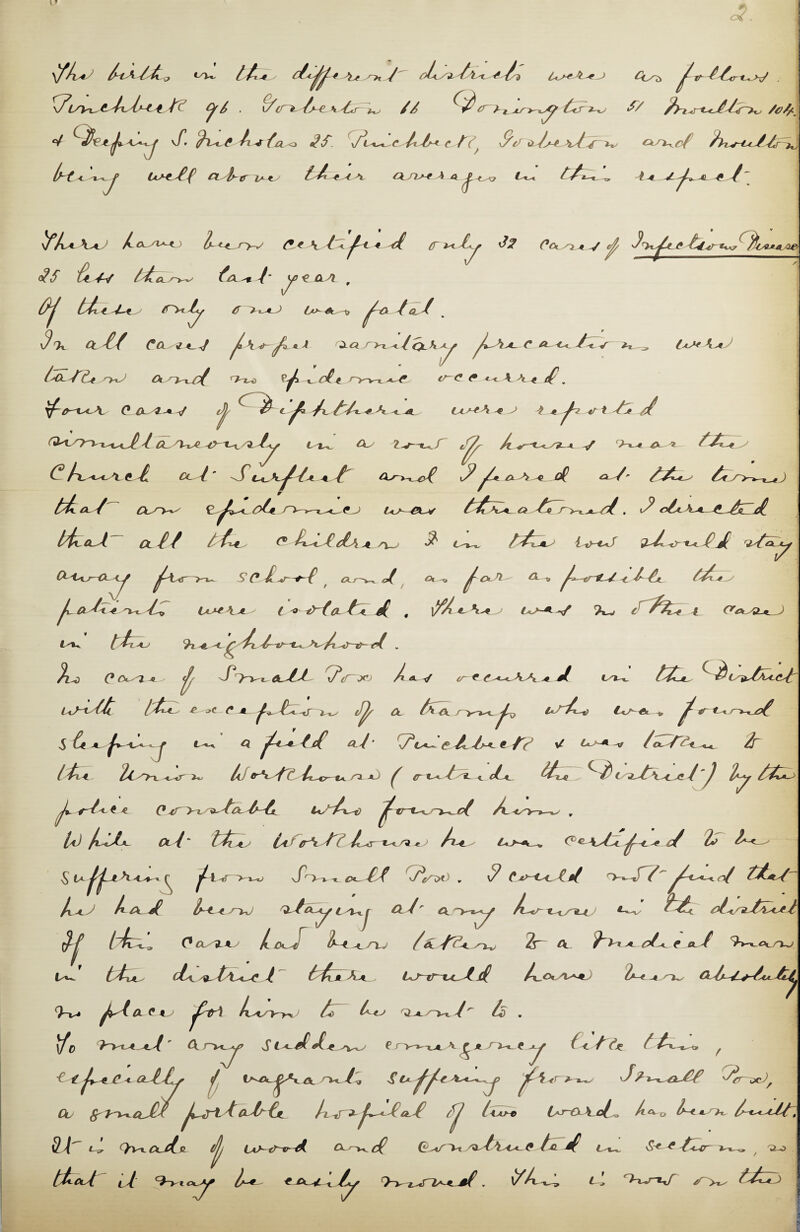 2.
The births in the different districts were as follows.
Pinchbeck 96. Gosberton 66 Donington 51 Moulton 104.
& Deeping S. Nicholas 25. Pinchbeck, Gosberton and Moulton
being well above their averages in this respect.
There have been certified only 32 cases of Infectious Disease
25 less than last year.
Of these only one was fatal.
In all cases proper sanitary precautions were
taken and no epidemic occurred.
Four cases of Diphtheria were reported
simultaneously in a row of houses near the
Church at Surfleet and I feared at the time
that an epidemic was threatened. I directed
that all the children in the row should stay
away from school, and, as far as possible the
patients were isolated. There was no other case
in the neighbourhood.
No case of Small Pox has occurred in the District
with the exception of a tramp who was found
sleeping in a field at Pinchbeck & was taken to
the Union Workhouse (outside the District) by the
police constable who found him.
While at the Workhouse he was certified to be
suffering from Small Pox. I could not find that
he had been staying at any house in the district
If this case had been taken to a Medical man
in the district there would have been absolutely
no place for him to be sent to.
To meet any sudden emergency like this,
especially of vagrants suffering from Small Pox,
a small portable hospital of two wards has been built.
It is made of wood and constructed in sections, so
that it may be easily moved. This is now on the